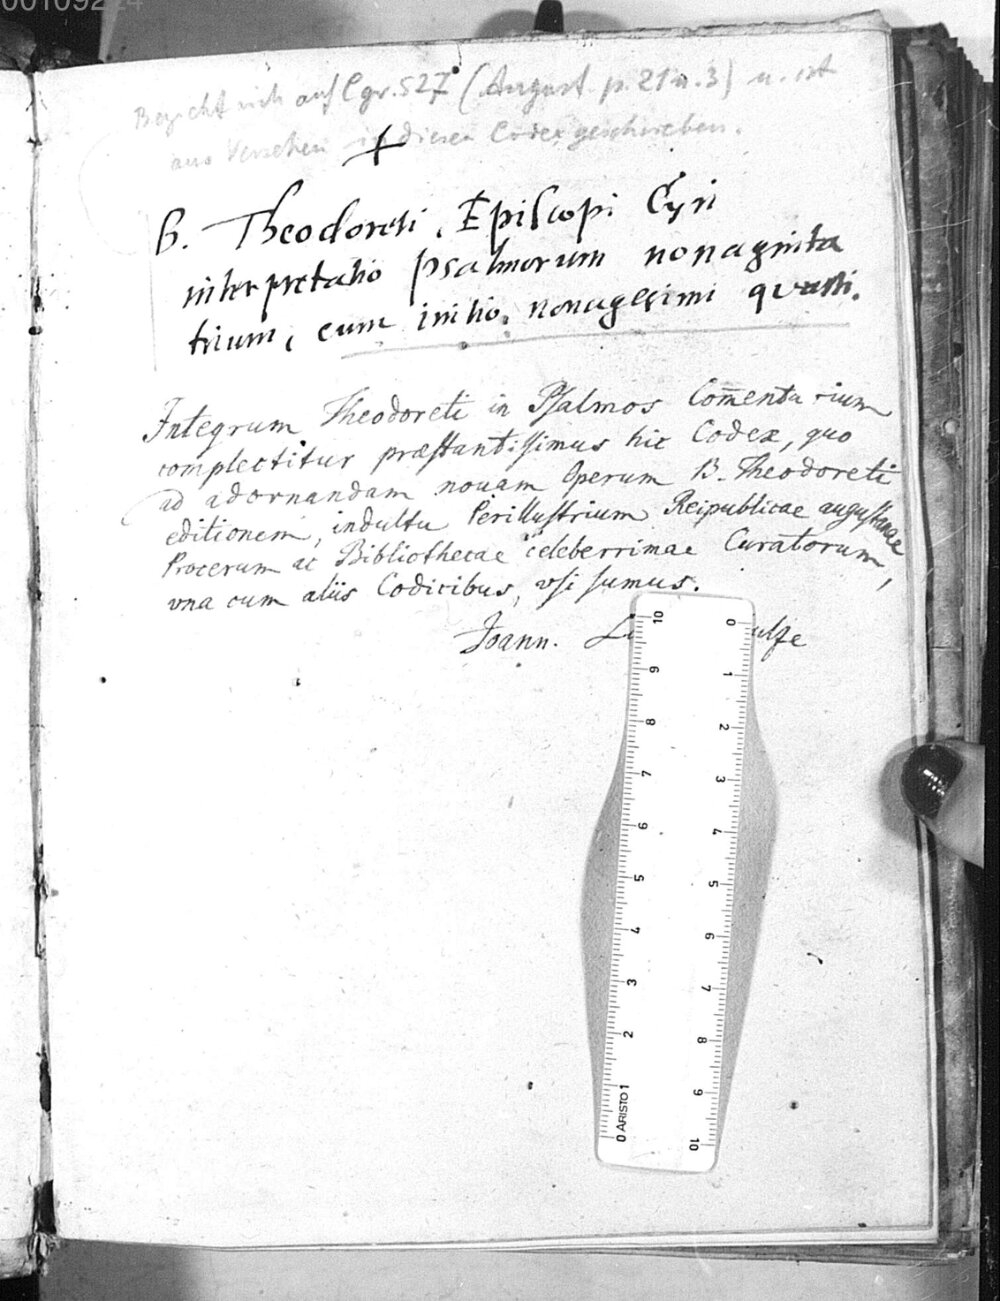 00109224
Bezieht sich auf Cgr. 527 (August. p. 21 n. 3) u. ist
aus Versehen in diesen Codex geschrieben.
B. Theodoreti, Episcopi Cyri
interpretatio Psalmorum nonaginta
trium, cum initio, nonagesimi quarti.
Integrum Theodoreti in Psalmos Com̅entarium
complectitur præstantissimus hic Codex, quo
ad adornandam nouam Operum B. Theodoreti
editionem, indultu Perillustrium Reipublicae augustanae
Procerum ac Bibliothecae celeberrimae Curatorum,
vna cum aliis Codicibus, vsi sumus.
Joann.
10 9 8 7 6 5 4 3 2 1 0
0 1 2 3 4 5 6 7 8 9 10
ARISTO